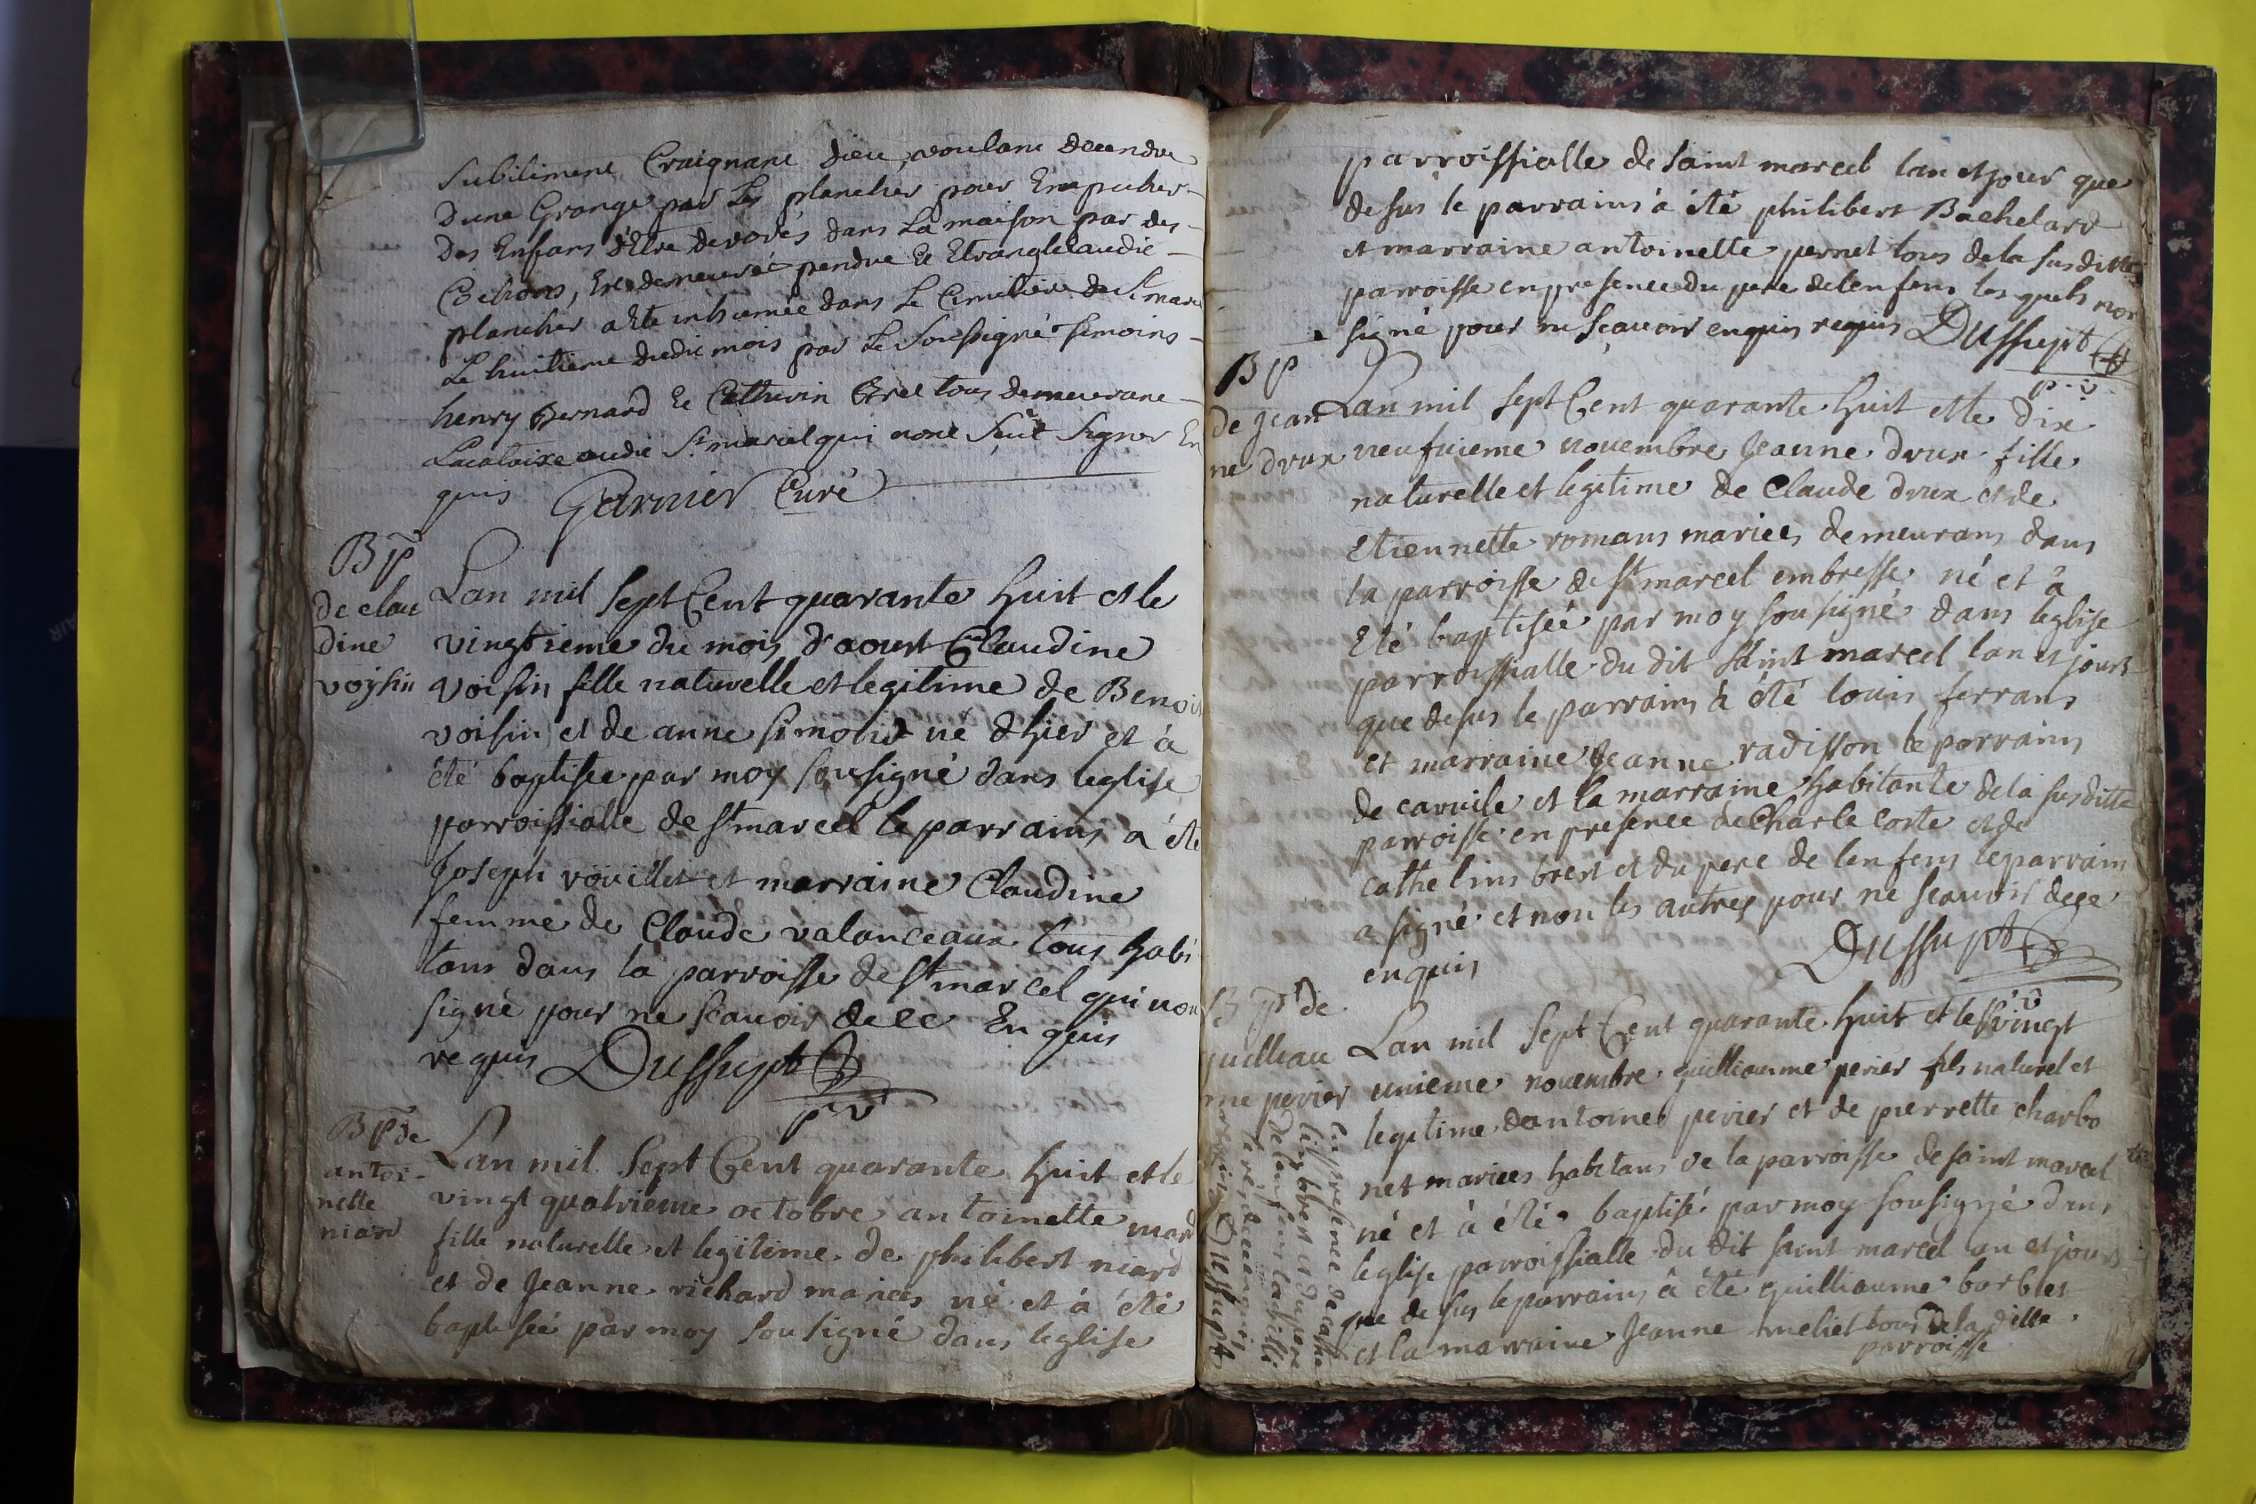 subitement Craignant dieu, voulant decendre
dune Grange par Les plancher pour Empecher
Des Enfans d'Etre devorés dans La maison par des
Cochons, Est demeurée pendue Et Etranglé audit
plancher a Ete inhumée dans Le Cimetiere de St marcel
Le huitieme dudit mois par Le Soussigné temoins
henry Bernard Et Catherin tous demeurant
audit St marcel qui nont Sçut Signer En
quis Garnier Curé
Bp
de clau
dine
voysin
Lan mil Sept Cent quarante huit et le
vingtieme du mois d'aoust Claudine
voisin fille naturelle et legitime de Benoit
voisin et de anne simond né d'hier et à
été baptisee par moy sousigné dans leglise
parroissialle de St marcel le parrains a été
Joseph vöuillet et marraine Claudine
femme de Claude valanceaux tous habi
tans dans la parroisse de St marcel qui non
signé pour ne scavoir de ce En quis
requis Dussupt
p. v
Bp de
antoi-
nette
niard
Lan mil Sept Cent quarante huit et le
vingt quatrieme octobre antoinette niard
fille naturelle et legitime de philibert niard
et de Jeanne richard maries né et à été
baptisée par moy sousigné dans leglise
parroissialle de saint marcel lan et jour que
desus le parrains à été philibert Bachelard
et marraine antoinette pernet tous de la susditte
parroisse en presence du pere de lenfens les quels non
signé pour ne sçavoir enquis requis Dussupt
p. v
Bp
de Jean
ne drux
Lan mil Sept Cent quarante huit et le dix
neufuieme novembre Jeanne drux fille
naturelle et legitime de Claude drux et de
Etiennette romans mariees demeurans dans
la parroisse de St marcel embresse né et à
Eté baptisée par moy sousigné dans leglise
parroissialle du dit saint marcel lan et jours
que desus le parrains à été louis ferrans
et marraine Jeanne radisson le parrains
de et la marraine habitante de la susditte
parroisse en presence de Charle Corte et de
cathelins bret et du pere de lenfens le parrain
a signé et non les autres pour ne scavoir de ce
enquis Dussupt
p. v
Bp de
guilleau
me perier
Lan mil Sept Cent quarante huit et le vingt
unieme novembre guilliaume perier fils naturel et
legitime dantoine perier et de pierrette charbo
net mariees habitans de la parroisse de saint marcel
né et à été baptisé par moy sousigné dans
leglise parroissialle du dit saint marcel an et jours
que desus le parrains à été guilliaume barblet
et la marraine Jeanne meliet tous de la ditte
parroisse
en presence de cathe
lin bret et du pere
de lenfens
Dussupt